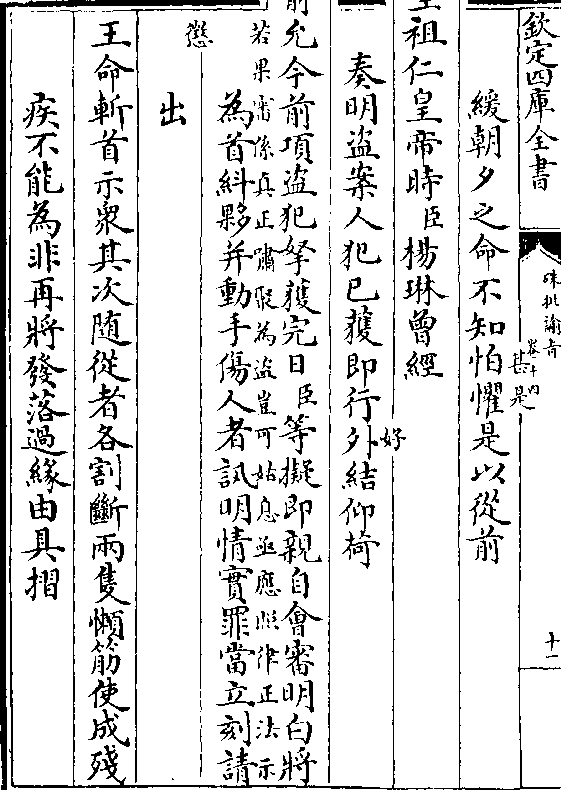 欽定四庫全書
硃批諭旨
卷十四
十一
緩朝夕之命不知怕懼是以從前
甚是
祖仁皇帝時臣楊琳曾經
奏明盜案人犯已獲即行外結仰荷
好
允今前項盜犯拏獲完日臣等擬即親自會審明白將
若果審係真正嘯聚為盜豈可姑息亟應照律正法示
懲
為首糾夥并動手傷人者訊明情實罪當立刻請
出
王命斬首示衆其次隨從者各割斷兩隻懶筋使成殘
疾不能為非再將發落過緣由具摺